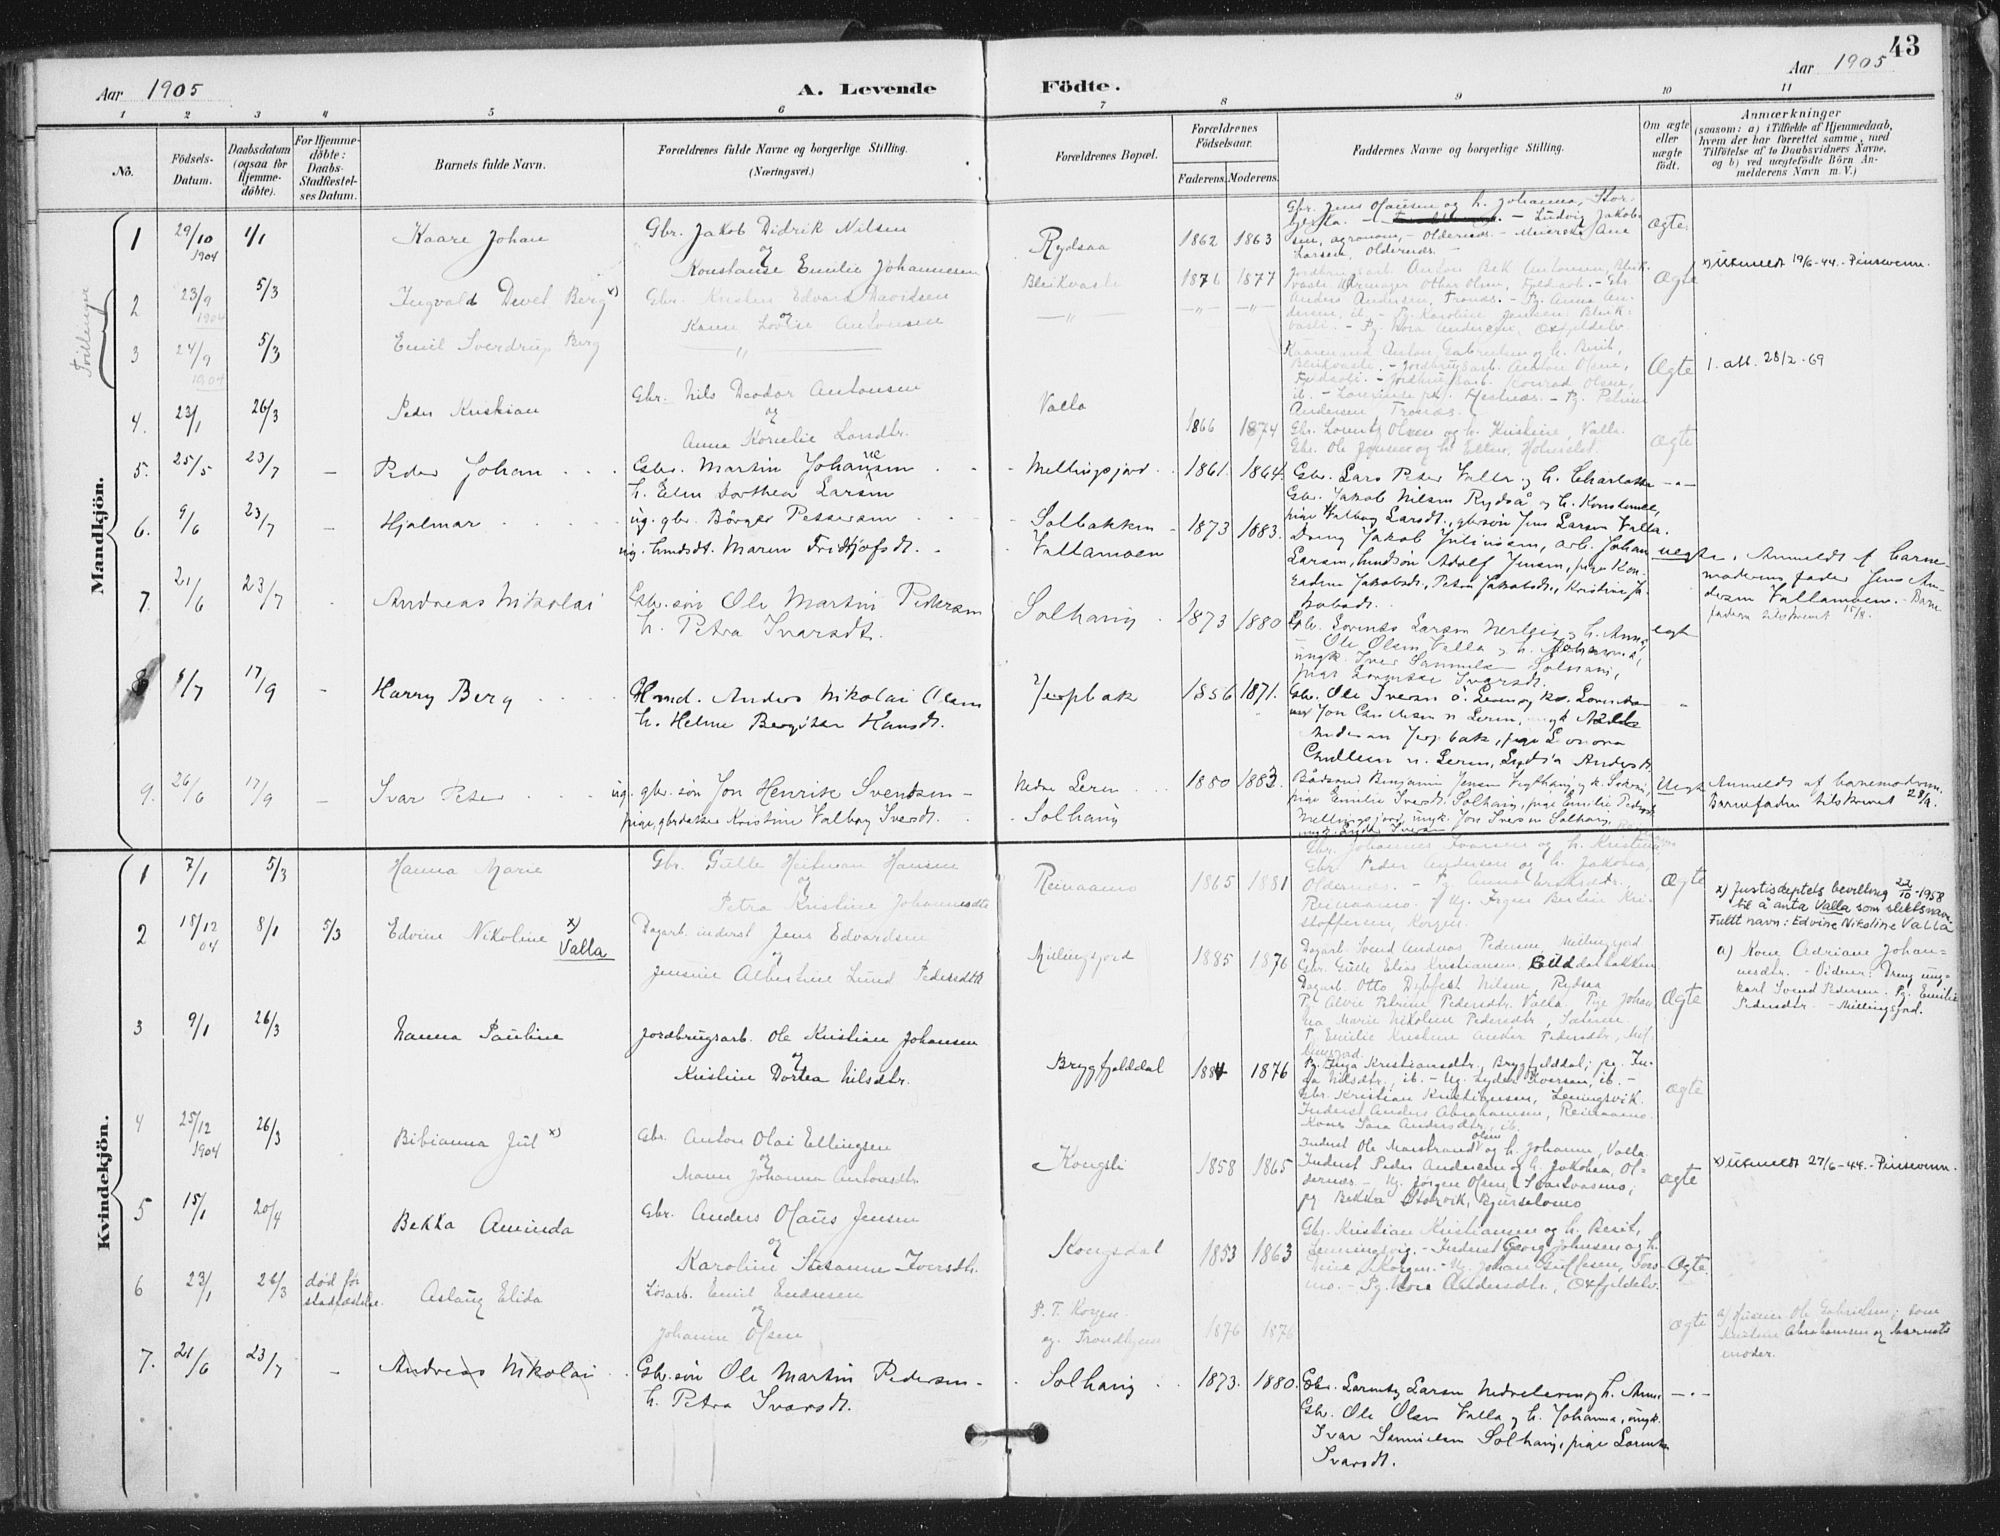 43
Aar 1905
A. Levende Födte.
Aar 1905
1 2 3 4 5 6 7 8 9 10 11
No.
Födsels-Datum.
Daabsdatum (ogsaa for Hjemmedöbte).
For Hjemmedöbte: Daabs-Stadfæstelses Datum.
Barnets fulde Navn.
Forældrenes fulde Navne og borgerlige Stilling. (Næringsvei.)
Forældrenes Bopæl.
Forældrenes Födselsaar.
Faderens. Moderens.
Faddernes Navne og borgerlige Stilling.
Om ægte eller uægte födt.
Anmærkninger
(saasom: a) i Tilfælde af Hjemmedaab, hvem der har forrettet samme, med Tilföielse af to Daabsvidners Navne, og b) ved uægtefödte Börn Anmelderens Navn m. V.)
Mandkjön.
Tvillinger
1 29/10 1904 1/1 Kaare Johan
Gbr. Jakob Didrik Nilsen
og
Konstanse Emilie Johannesen
Rydsaa 1862 1863
Gbr. Jens Olausen og h. Johanna, Stor-
- Ludvig Jakob-
sen, agronom, - Oldernes. - Meierske Ane
Larsen, Oldernes.
Ægte.
2 23/9 1904 5/3 Ingvald Devel Berg x)
Gbr. Kristen Edvard Davidsen
og
Hanna Lovise Antonsen
Bleikvasli 1876 1877
Jordbrugsarb. Anton Bek Antonsen, Bleik-
vasli. Othar Olsen, Fjeldavl. - Gbr
Anders Andersen, Tronæs. - Pg. Anna An-
dersen, ib. - Pg. Karoline Jensen, Bleik-
vasli. - Pg. Nora Andersen, Oxfjeldelv.
Ægte
x) Utmeldt 19/6-44. - Pinsevenn.
3 24/9 1904 5/3 Emil Sverdrup Berg
- " -
- " - - " - - " -
Anton Gabrielsen og h. Berit,
Bleikvasli. - Jordbrugsarb. Anton Olsen,
- Jordbrugsarb. Konrad Olsen,
ib. - Hestnæs. - Pg. Petrine
Andersen Tronæs.
Ægte 1. att. 28/2-69
4. 23/1 26/3 Peder Kristian
Gbr. Nils Deodor Antonsen
og
Anna Kornelie Larsdtr.
Valla 1866 1874
Gbr. Lorents Olsen og h. Kristine, Valla.
Gbr. Ole Jensen og h. Ellen, Holmslet.
Ægte
5. 25/5 23/7 - Peder Johan
Gbr. Martin Johansen
h. Elen Dorthea Larsen
Mellingsjord 1861. 1864.
Gbr. Lars Peter Valla og h. Charlotte
Gbr. Jakob Nilsen Rydså og h. Konstanse,
pige Valborg Larsdt., gbrsøn Jens Larsen Valla.
- " -
6. 9/6 23/7 - Hjalmar
ug. gbr. Börger Petersen
ug. husdt. Maren Fridtjofsdt.
Solbakken
Vallamoen 1873 1883.
Dreng Jakob Juliussen, arb. Johan
Larsen, husson Adolf Jensen, pige Kon-
Jakobsdt., Petra Jakobsdt., Kristine Ja-
kobsdt.
uegte, Anmeldt af barne-
moderens fader Jens An-
dersen Vallamoen. - Barne-
faderen tilskrevet 15/8.
7. 21/6 23/7 Andreas Nikolai
Gbr.søn Ole Martin Pedersen
h. Petra Ivarsdt.
Solhaug 1873 1880
Gbr. Lorents Larsen Nerlein og h. Anna,
Ole Olsen Valla og h. Johanna,
ungk. Iver Samuelsen Solhaug,
pige Lorentse Ivarsdt.
egte
8 1/7 17/9 - Harry Berg
Hmd. Anders Nikolai Olsen
h. Helene Bergitte Hansdt.
Jerpbak 1856 1871.
Gbr. Ole Iversen ö. Leren og ko. Lorentse
Jon n. Leren, ungk.
Andersen Jerpbak, pige Lenora
n. Leren, Lydia Andersdt.
"
9. 26/6 17/9 - Ivar Peter
ug. gbr. søn Jon Henrik Svendsen -
pige, gbrdatter Kristine Valborg Iversdt.
Nedre Leren
Solhaug 1880 1883.
Bådsmd Benjamin Jensen
pige Emilie Iversdt. Solhaug, pige Emilie Pedersdt.
Mellingsjord, ungk. Jon Iversen Solhaug,
Uegte Anmeldt af barnemoderen.
Barnefaderen tilskrevet 28/9.
Kvindekjön.
1 7/1 5/3 Hanna Marie
Gbr. Gulle Heitman Hansen
og
Petra Kristine Johannesdtr
Reinaamo 1865 1881
Gbr. Johannes Ivarsen og h. Kristine
Gbr. Peder Andersen og h. Jakobea,
Oldernæs. - Pg. Anna Eriksdtr.
Reinaamo. - Ug. Jrgen Bertin Kri-
stoffersen, Korgen.
Ægte
2 18/12 04 8/1 5/3 Edvine Nikoline x) Valla
Dagarb. inderst Jens Edvardsen
og
Jensine Albertine Lund Pedersdtr
Millingsjord 1885 1876
Dagarb. Svend Andreas Pedersen, Mellingsjord
Gbr. Gulle Elias Kristiansen,
Dagarb. Otto Dybfest Nilsen, Rydsaa
P. Alvie Petrine Pedersdtr. Valla, Pge Johan-
na Marie Nikoline Pedersdtr,
P. Emilie Kristine Pedersdtr, Mel-
lingsjord.
Ægte
x) Justisdeptets bevilling 22/10-1958
til å anta Valla som slektsnavn.
Fullt navn: Edvine Nikoline Valla
a) Kone Adriane Johan-
nesdtr. - Vidner: Dreng ung-
karl Svend Pedersen. Pg. Emilie
Pedersdtr - Millingsjord.
3 9/1 26/3 Nanna Pauline
Jordbrugsarb. Ole Kristian Johansen
og
Kristine Dortea Nilsdtr.
Brygfjelddal 1884 1876
Pg. Inga Kristiansdtr., Brygfjelddal; pg. In-
ga Nilsdtr., ib. - Ug. Peder Iversen, ib. -
Gbr. Kristian Kristiansen, Leningsvik.
Inderst Anders Abrahamsen, Reinaamo.
Kone Sara Andersdtr, ib.
Ægte
4 25/12 1904 26/3 Bibianna Jul x)
Gbr. Anton Olai Ellingsen
og
Maren Johanna Antonsdtr.
Kongsli 1858 1865
Inderst Ole Marstrand Olsen og h. Johanne, Valla
Inderst Peder Andersen og h. Jakobea, Ol-
dernæs - Ug. Jørgen Olsen, Svartvasmo,
pg Bekka Storvik, Bjurselvmo
Ægte
x) Utmeldt 27/6-44. - Pinsevenn.
5 15/1 20/4 Bekka Aminda
Gbr. Anders Olaus Jensen
og
Karoline Stesanne Iversdtr.
Kongsdal 1853 1863
Gbr. Kristian Kristiansen og h. Berit,
Lenningsvig. - Inderst Georg Johnsen og h.
Korgen. - Ug. Johan Gullesen, Fors-
mo. - Pg. Nora Andersdtr., Oxfjeldelv.
Ægte.
6 23/1 26/3 død før stadfæstelse. Aslaug Elida
Løsarb. Emil Endresen
og
Johanne Olsen
P. T. Korgen.
eg. Trondhjem 1876 1876
Ægte
a) Husmor Ole Gabrielsen; samt
Abrahamsen og barnets
moder.
7. 21/6 23/7 - Andreas Nikolai
Gbr.søn Ole Martin Pedersen -
h. Petra Ivarsdt.
Solhaug 1873. 1880.
Gbr. Lorents Larsen Nedreleren og h. Anna
Gbr. Ole Olsen Valla og h. Johanna, ungk.
Ivar Samuelsen Solhaug, pige Lorentse
Ivarsdt.
- " -